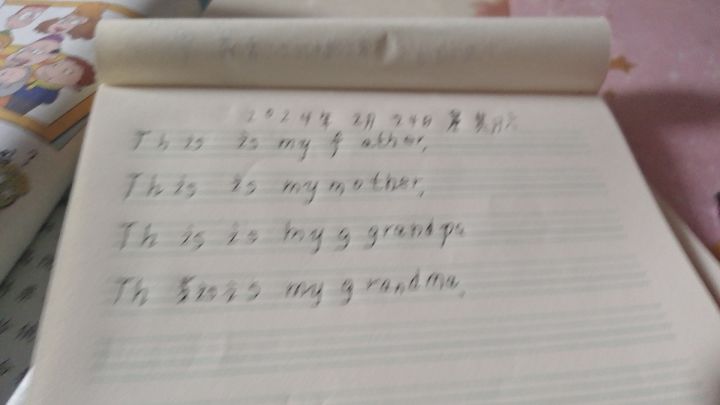 2024年 2月 24日 星期六
This is my father,
This is my mother,
This is my g grandpa
This is my grandma,